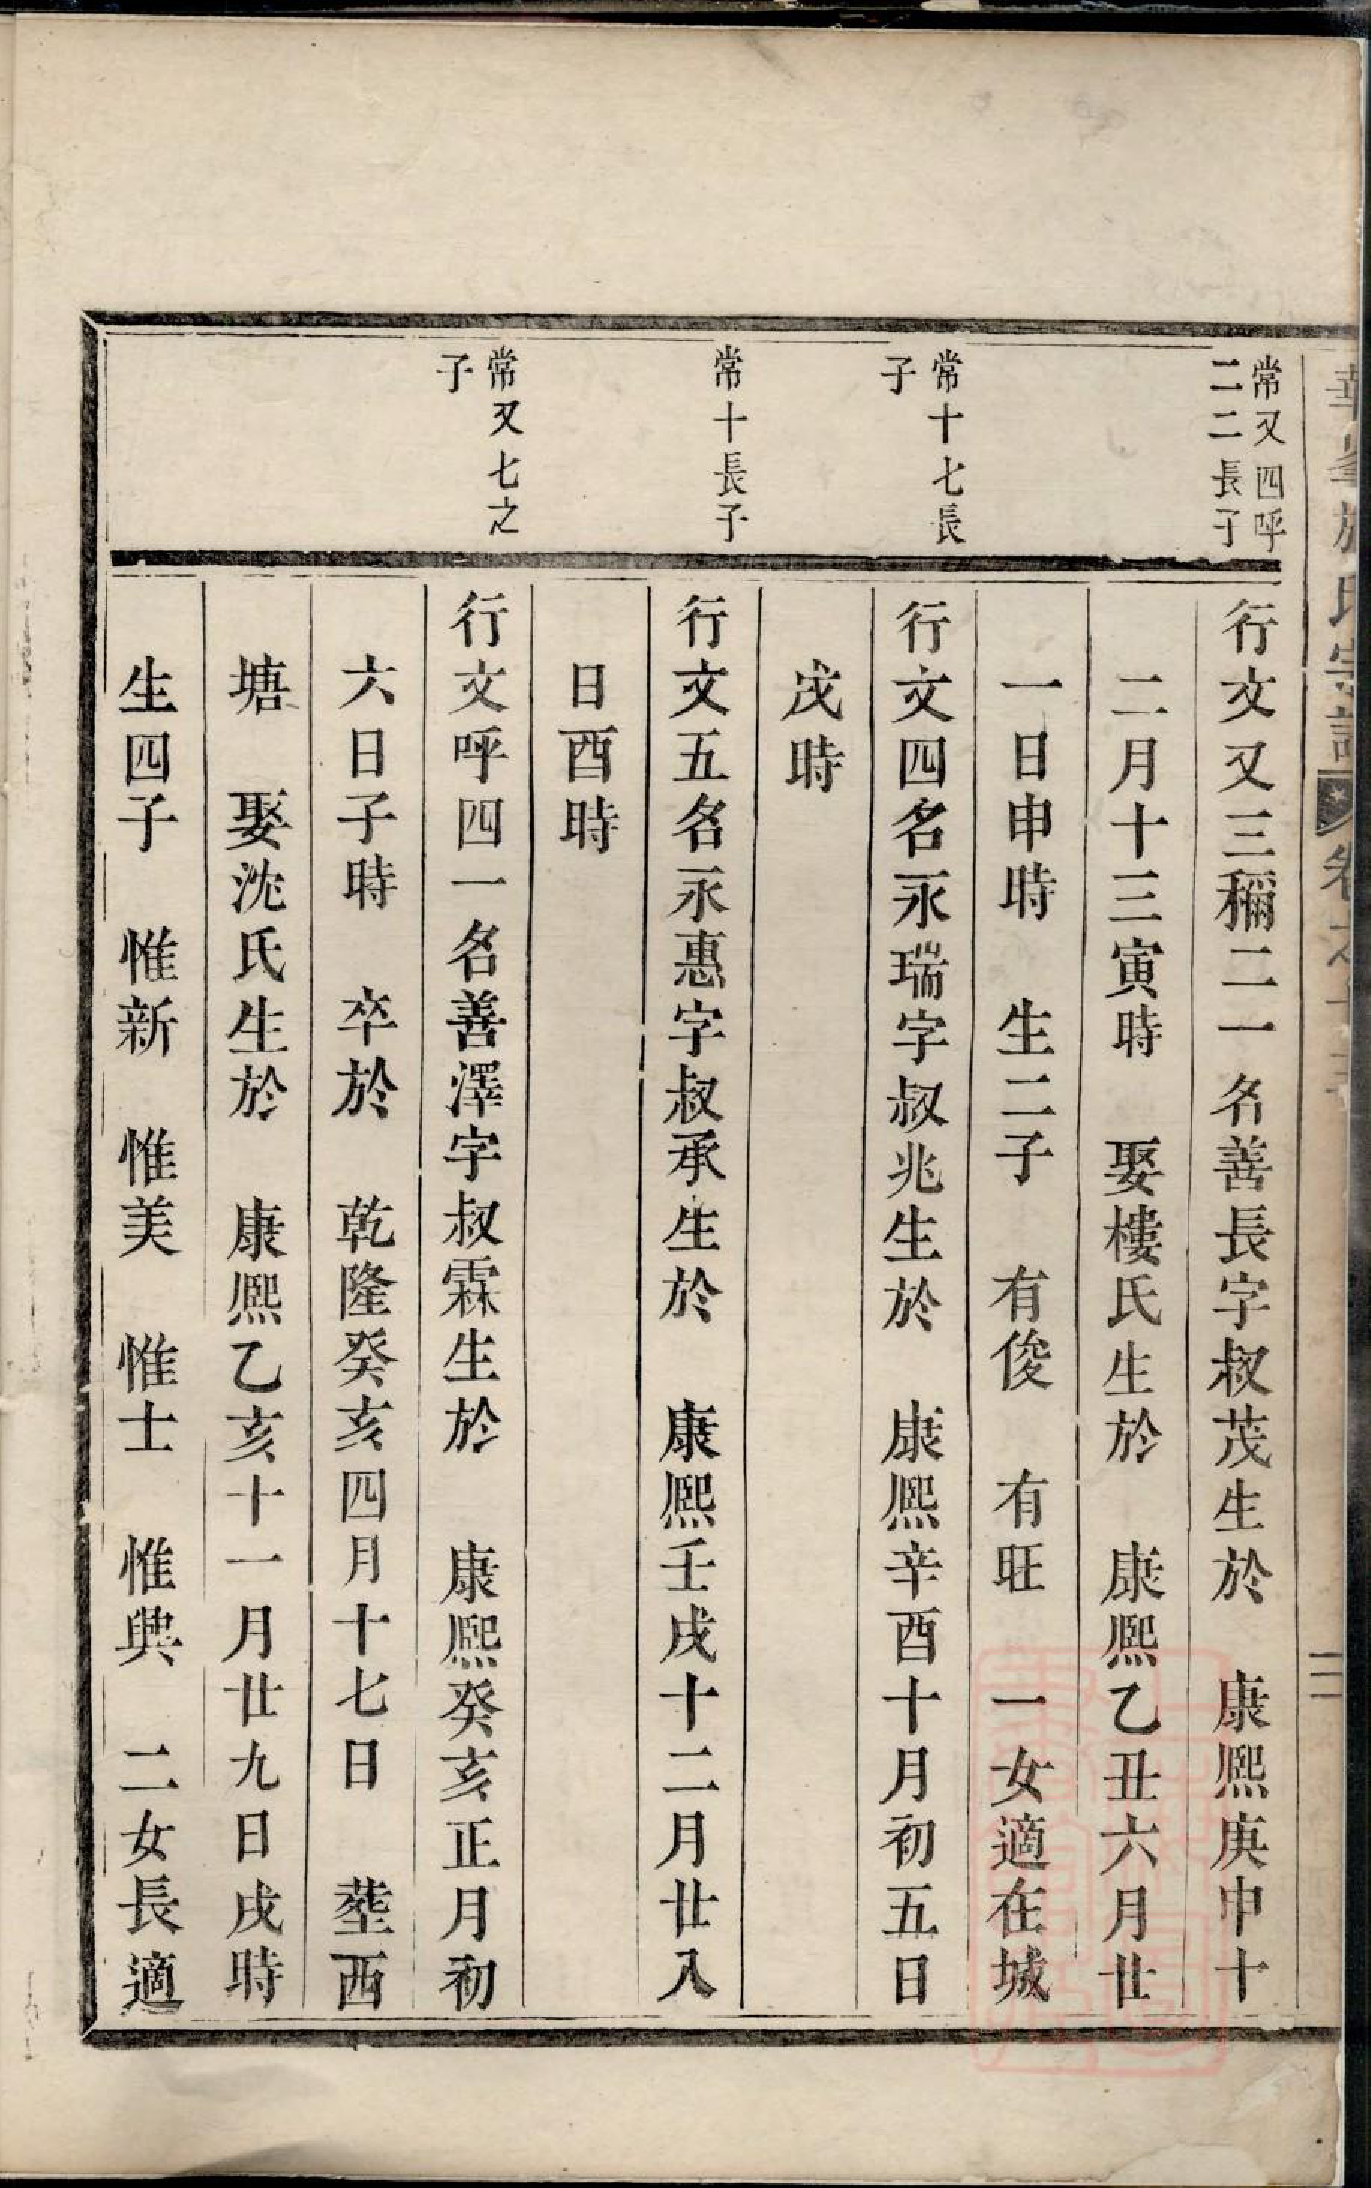 常又四呼
二二長子
行文又三稱二一名善長字叔茂生於 康熙庚申十
二月十三寅時 娶樓氏生於 康熙乙丑六月廿
一日申時 生二子 有俊 有旺 一女適在城
常十七長
子
行文四名永瑞字叔兆生於 康熙辛酉十月初五日
戌時
常十長子
行文五名永惠字叔承生於 康熙壬戌十二月廿八
日酉時
常又七之
子
行文呼四一名善澤字叔霖生於 康熙癸亥正月初
六日子時 卒於 乾隆癸亥四月十七日 塟西
塘 娶沈氏生於 康熙乙亥十一月廿九日戌時
生四子 惟新 惟美 惟士 惟興 二女長適